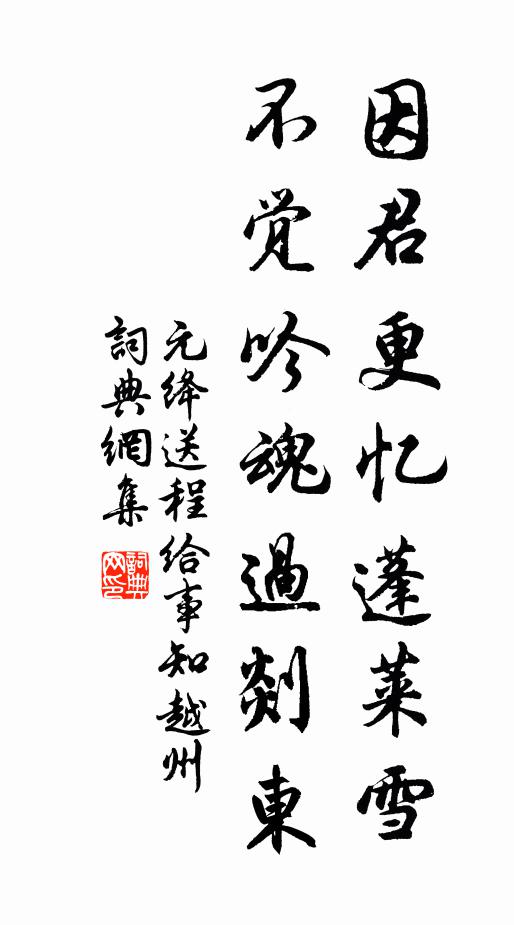 因君更忆蓬莱雪
不觉吟魂過剡東
元绛送程给事知越州
詞典網集
詞典
网印